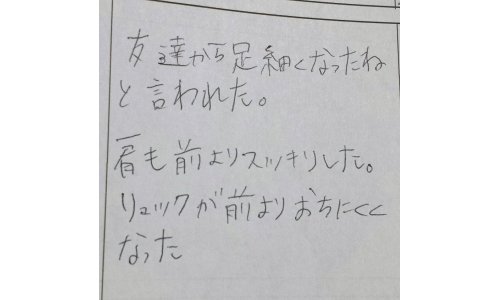 友達から足細くなったね
と言われた。
肩も前よりスッキリした。
リュックが前よりおちにくく
なった